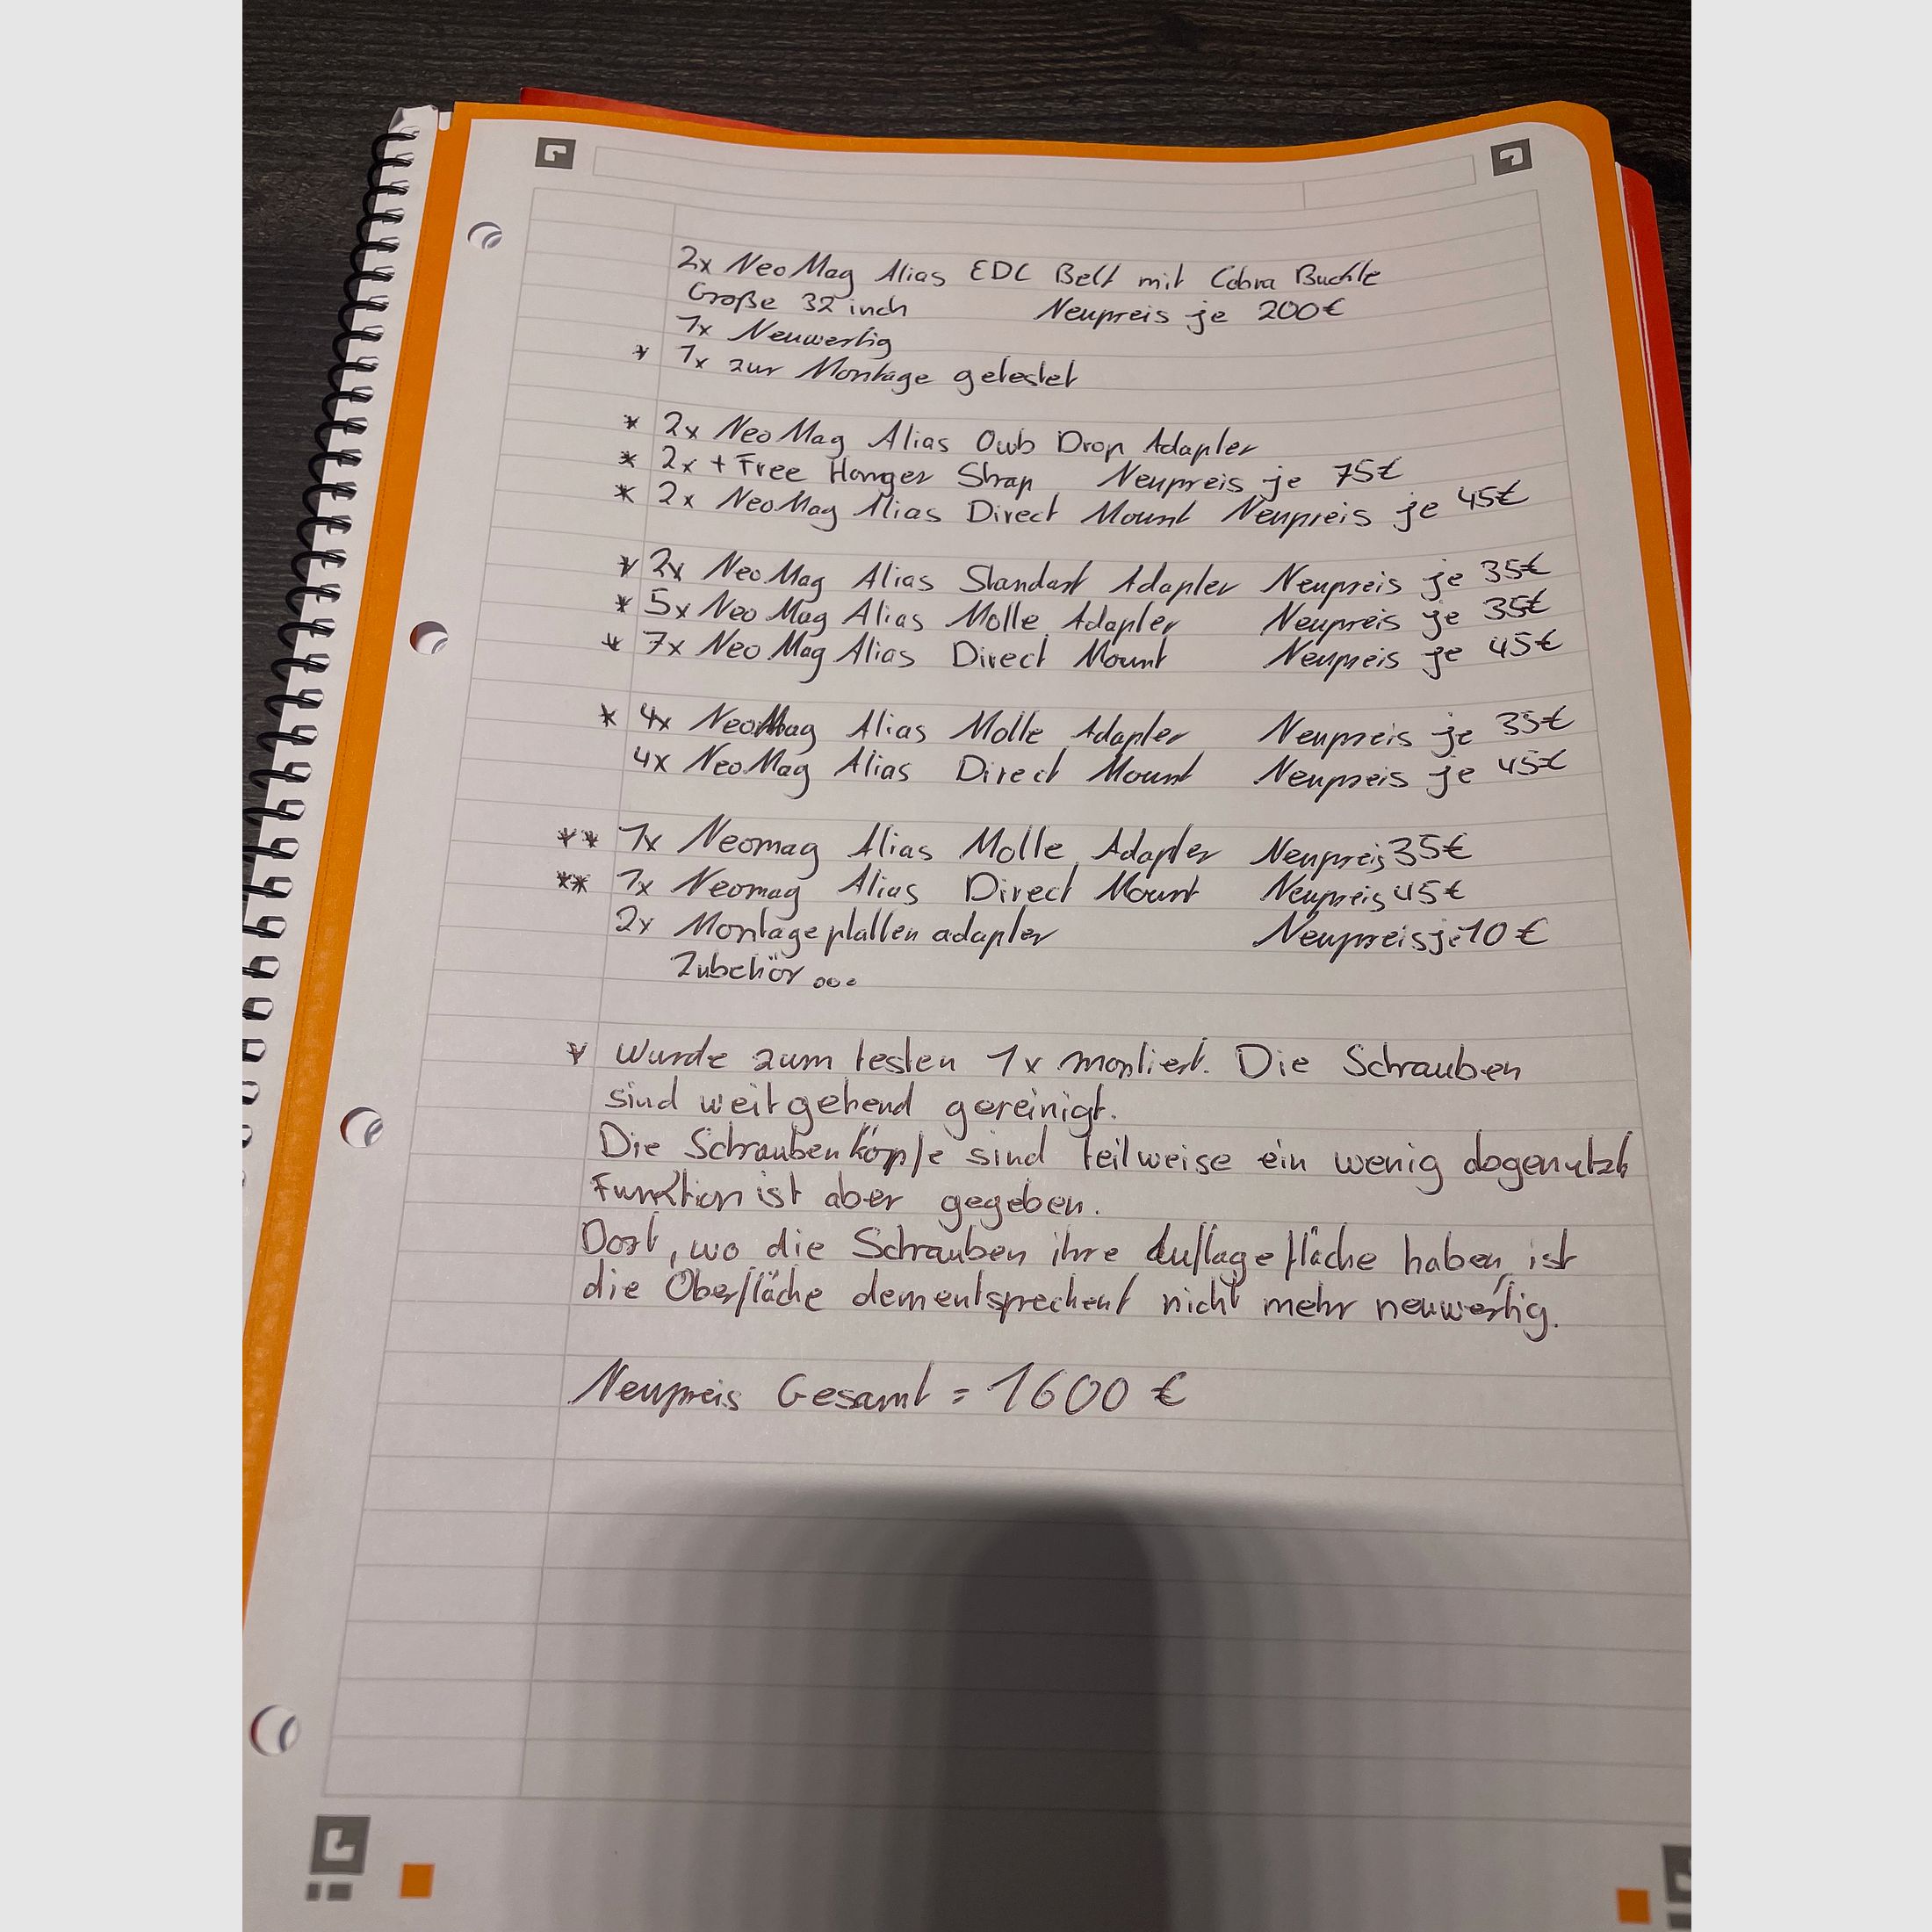 2x NeoMag Alias EDC Belt mit Cobra Buckle
Große 32 inch Neupreis je 200€
1x Neuwertig
* 1x zur Montage getestet
* 2x NeoMag Alias Owb Drop Adapter
* 2x + Free Hanger Strap Neupreis je 75€
* 2x NeoMag Alias Direct Mount Neupreis je 45€
* 2x NeoMag Alias Standart Adapter Neupreis je 35€
* 5x NeoMag Alias Molle Adapter Neupreis je 35€
* 7x NeoMag Alias Direct Mount Neupreis je 45€
* 4x NeoMag Alias Molle Adapter Neupreis je 35€
4x NeoMag Alias Direct Mount Neupreis je 45€
** 1x Neomag Alias Molle Adapter Neupreis 35€
** 1x Neomag Alias Direct Mount Neupreis 45€
2x Montageplatten adapter Neupreis je 10€
Zubehör...
* Wurde zum testen 1x montiert. Die Schrauben
sind weitgehend gereinigt.
Die Schraubenköpfe sind teilweise ein wenig abgenutzt
Funktion ist aber gegeben.
Dort, wo die Schrauben ihre Auflagefläche haben, ist
die Oberfläche dementsprechent nicht mehr neuwertig.
Neupreis Gesamt = 1600€